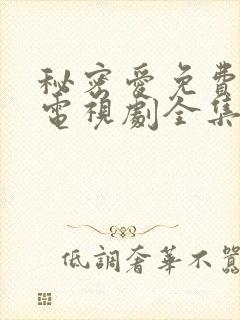 秘密愛免費
電視劇全集
低調奢華不囂